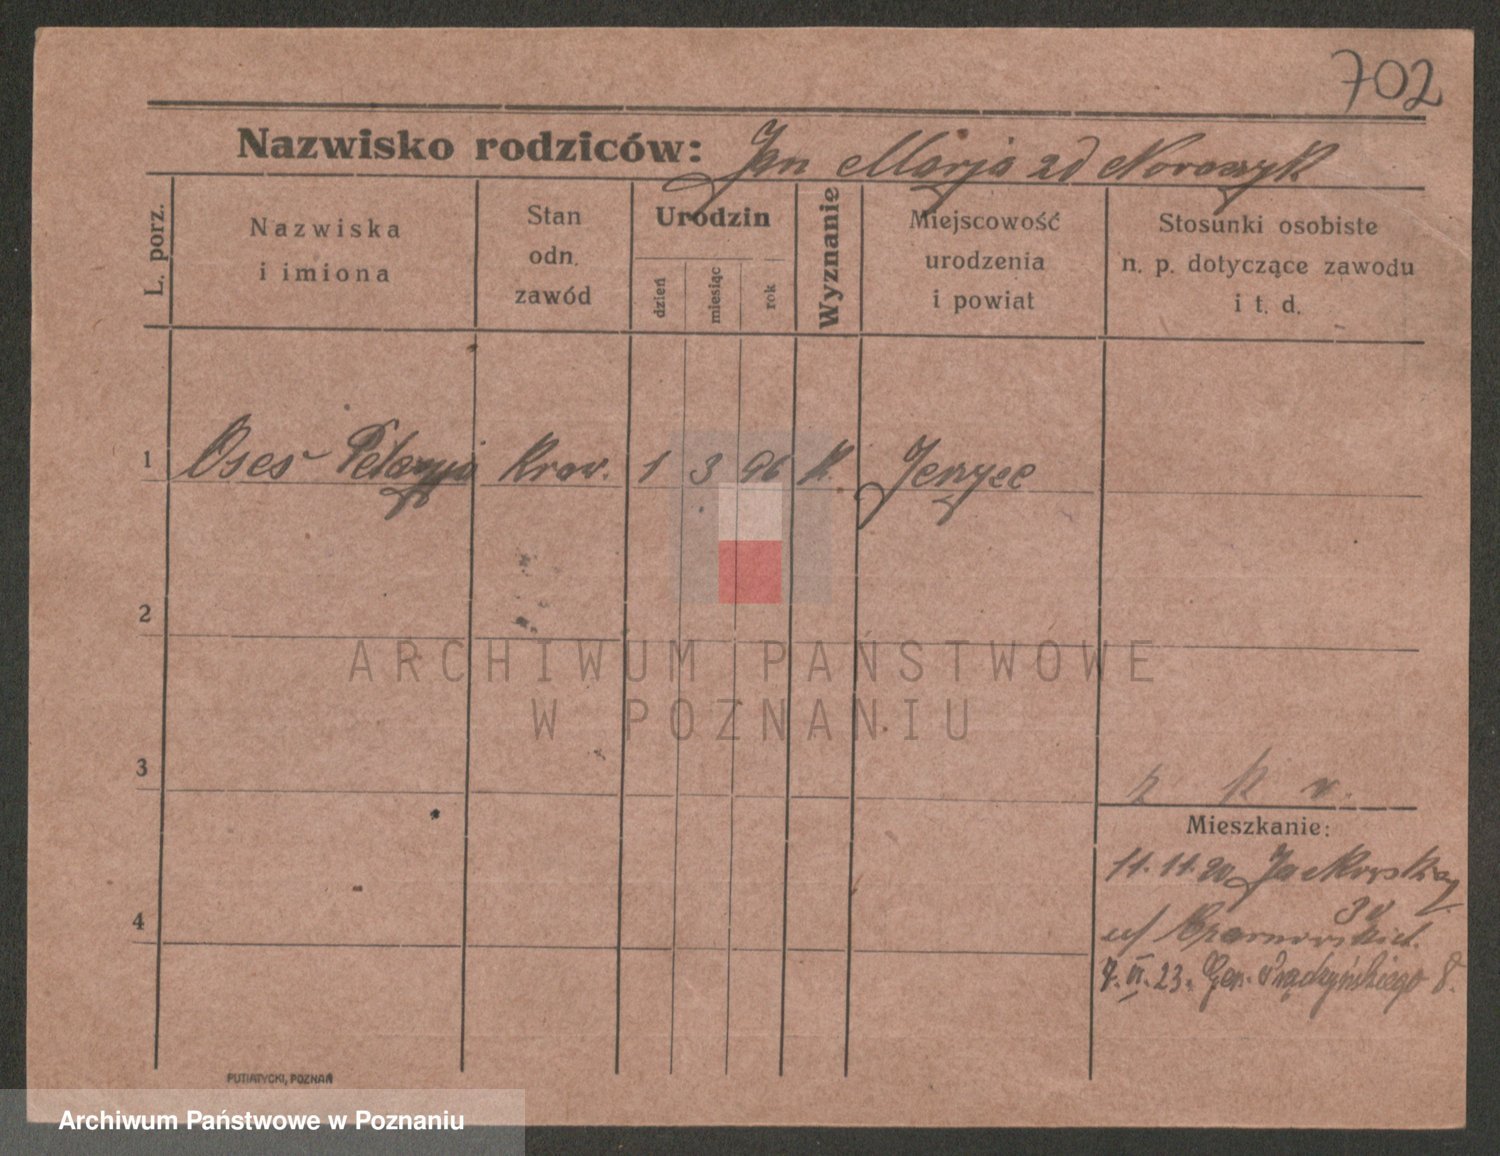 702
Nazwisko rodziców: Jan Marja zd Noraszyk
L. porz.
Nazwiska
i imiona
Stan
odn.
zawód
Urodzin
dzień
miesiąc
rok
Wyznanie
Miejscowość
urodzenia
i powiat
Stosunki osobiste
n. p. dotyczące zawodu
i t. d.
1 Oses Pelagja Kraw. 1 3 96 K. Jerzyce
2
3
4
Mieszkanie:
11.11.20 Jackowskiego
30
u/
7.VI.23. Gen. Prądzyńskiego 8.
PUTIATYCKI, POZNAŃ
ARCHIWUM PAŃSTWOWE
W POZNANIU
Archiwum Państwowe w Poznaniu